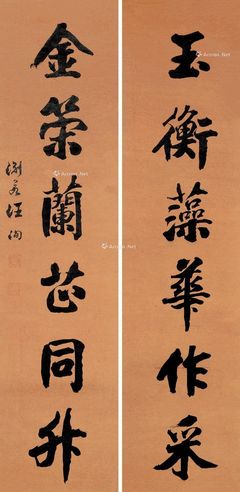 玉衡藻華作采
金策蘭芷同升
淵若汪洵
Artron.Net